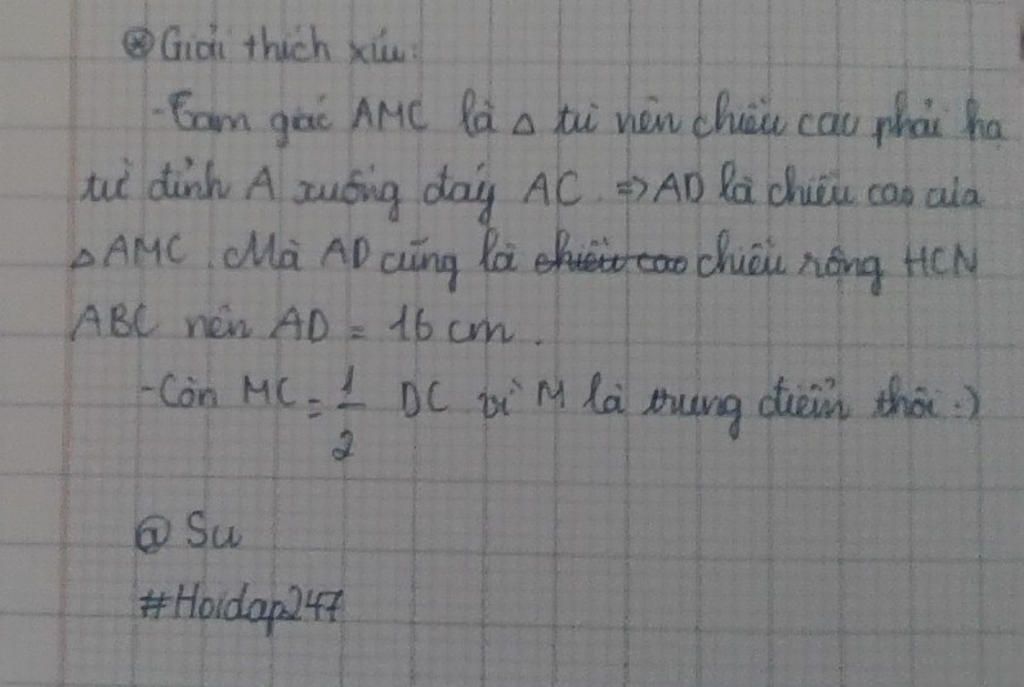 ⊛ Giải thích xíu:
- Tam giác AMC là △ tù nên chiều cao phải hạ
từ đỉnh A xuống đáy AC. => AD là chiều cao của
△ AMC. Mà AD cũng là chiều cao chiều rộng HCN
ABC nên AD = 16 cm.
- Còn MC = 1/2 DC vì M là trung điểm thôi :)
@ Su
#Hoidap247